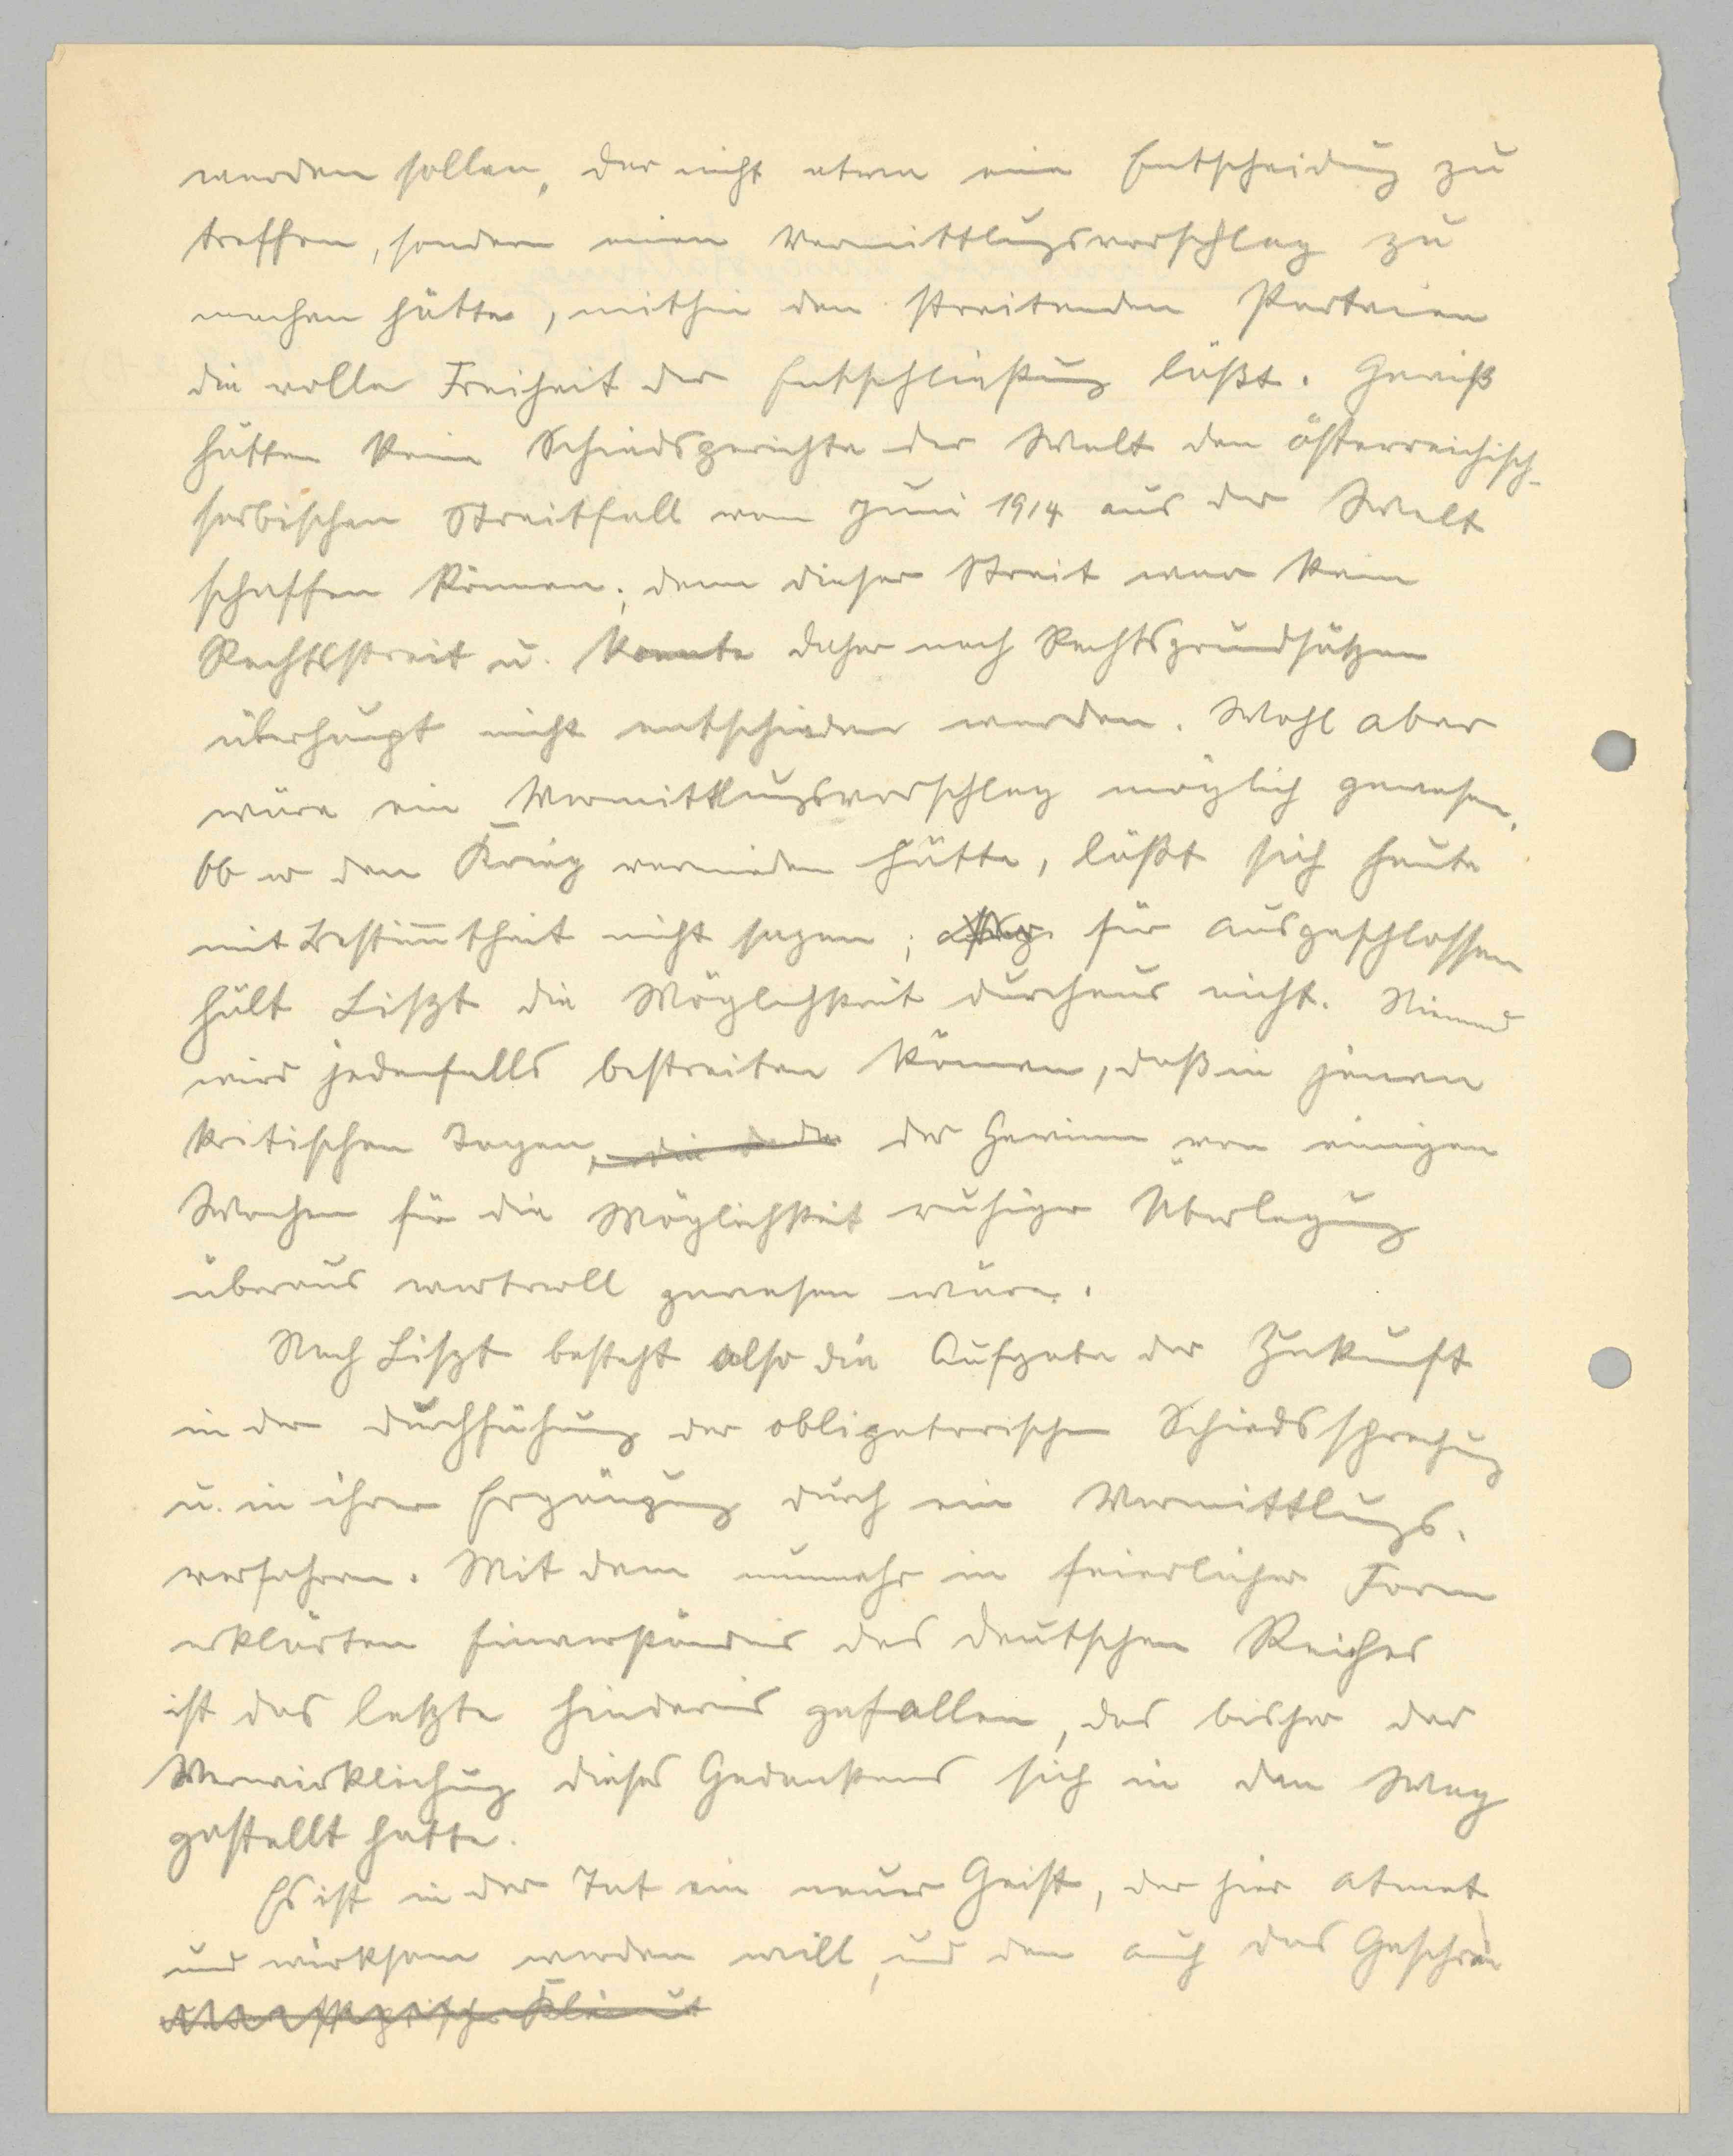 werden sollen, der nicht etwa eine Entscheidung zu
treffen, sondern einen Vermittlungsvorschlag zu
machen hätte, mithin den streitenden Parteien
die volle Freiheit der Entschließung läßt. Gewiß
hätten keine Schiedsgerichte der Welt den österreichisch-
serbischen Streitfall vom Juni 1914 aus der Welt
schaffen können; denn dieser Streit war kein
Rechtsstreit u. konnte daher nach Rechtsgrundsätzen
überhaupt nicht entschieden werden. Wohl aber
wäre ein Vermittlungsvorschlag möglich gewesen.
Ob er den Krieg vermieden hätte, läßt sich heute
mit Bestimmtheit nicht sagen; für ausgeschlossen
hält Liszt die Möglichkeit durchaus nicht. Niemand
wird jedenfalls bestreiten können, daß in jenen
kritischen Tagen, der Gewinn von einigen
Wochen für die Möglichkeit ruhiger Überlegung
überaus wertvoll gewesen wäre.
Nach Liszt besteht also die Aufgabe der Zukunft
in der Durchführung der obligatorischen Schiedssprechung
u. in ihrer Ergänzung durch ein Vermittlungs-
verfahren. Mit dem nunmehr in feierlicher Form
erklärten Einverständnis des Deutschen Reiches
ist das letzte Hindernis gefallen, das bisher der
Verwirklichung dieses Gedankens sich in den Weg
gestellt hatte.
Es ist in der Tat ein neuer Geist, der hier atmet
und wirksam werden will, und den auch das Geschrei